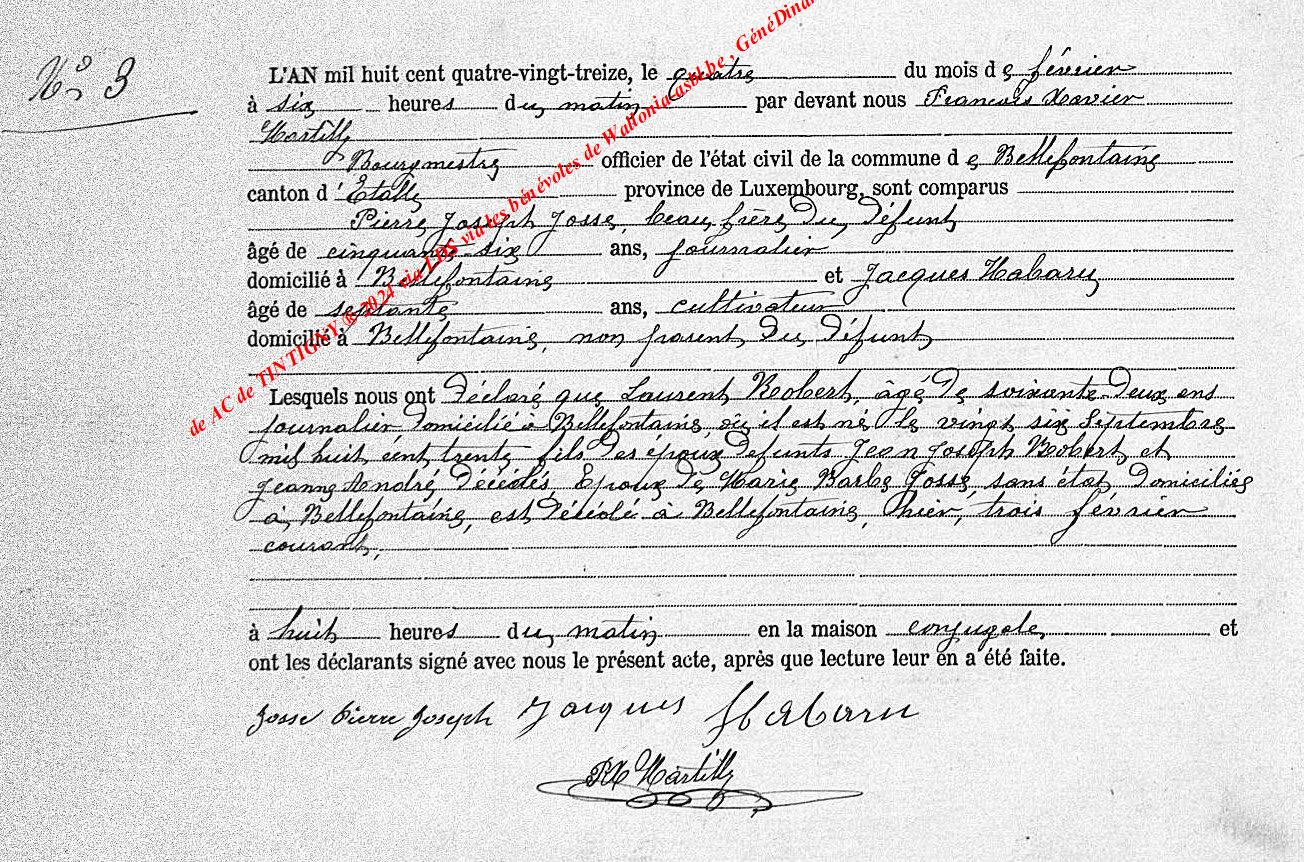 N° 3
L'AN mil huit cent quatre-vingt-treize, le quatre du mois de février
à six heures du matin par devant nous François Xavier
Martilly
Bourgmestre officier de l'état civil de la commune de Bellefontaine
canton d'Etalle province de Luxembourg, sont comparus
Pierre Joseph Josse, beau frère du défunt
âgé de cinquante-six ans, journalier
domicilié à Bellefontaine et Jacques Habaru
âgé de septante ans, cultivateur
domicilié à Bellefontaine, non parent du défunt
Lesquels nous ont déclaré que Laurent Robert, âgé de soixante-deux ans
journalier domicilié à Bellefontaine, où il est né le vingt six Septembre
mil huit cent trente fils des époux défunts Jean Joseph Robert et
Jeanne André décédés, Epoux de Marie Barbe Josse, sans état domiciliés
à Bellefontaine, est décédé à Bellefontaine, hier, trois février
courant,
à huit heures du matin en la maison conjugale, et
ont les déclarants signé avec nous le présent acte, après que lecture leur en a été faite.
Josse Pierre Joseph Jacques Habaru
FX Martilly
de AC de TINTIGNY ® 2021 via LDS via les bénévoles de Wallonia-asbl.be , GénéDinan